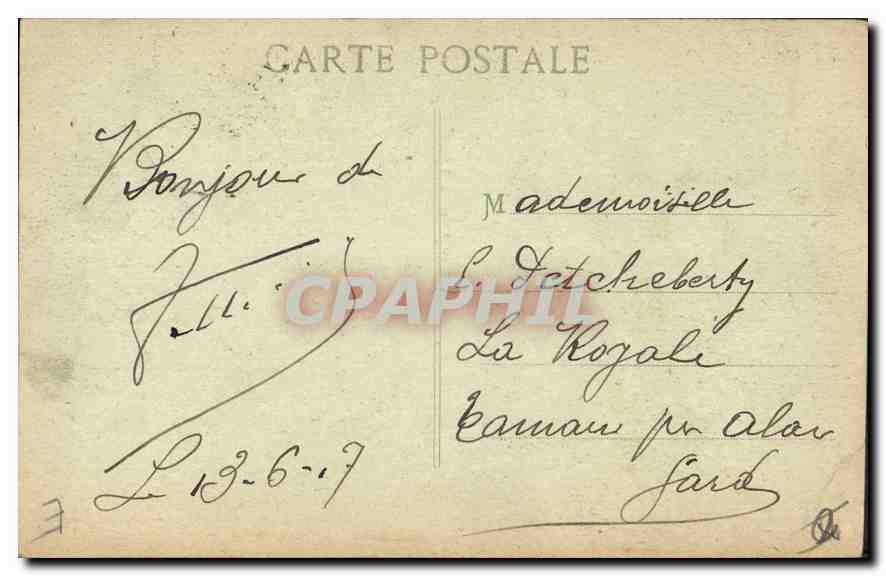 CARTE POSTALE
Bonjour de
Le 13-6-17
Mademoiselle
E. Detcheberty
La Royale
Tamaris par Alais
Gard
CPAPHIL